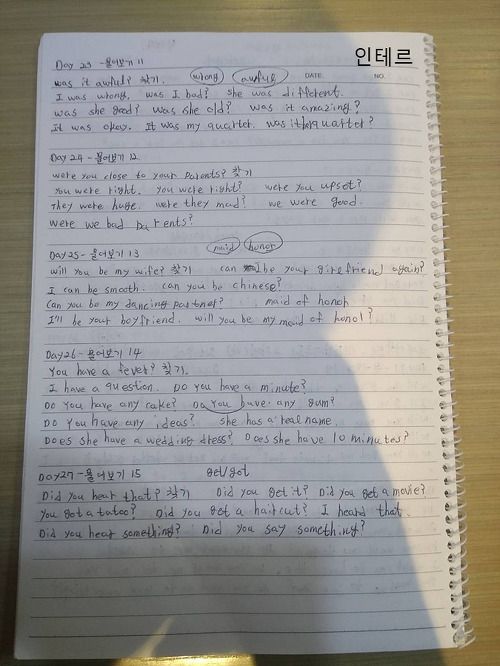 인테르
Day 23 - 물어보기 11
was it awful? 찾기. wrong awful DATE. NO.
I was wrong. was I bad? she was different.
was she good? was she old? was it amazing?
It was okay. It was my quartet. was it her quarter?
Day 24 - 물어보기 12
were you close to your parents? 찾기
You were right. you were right? were you upset?
They were huge. were they mad? we were good.
were we bad parents?
Day 25 - 물어보기 13 maid honor
will you be my wife? 찾기 can I be your girlfriend again?
I can be smooth. can you be chinese?
Can you be my dancing partner? maid of honor
I'll be your boyfriend. will you be my maid of honor?
Day 26 - 물어보기 14
You have a fever? 찾기.
I have a question. Do you have a minute?
Do you have any cake? Do you have any gum?
Do you have any ideas? she has a real name.
Does she have a wedding dress? Does she have 10 minutes?
Day 27 - 물어보기 15 get/got
Did you hear that? 찾기 Did you get it? Did you get a movie?
You got a tatoo? Did you get a haircut? I heard that.
Did you hear something? Did you say something?